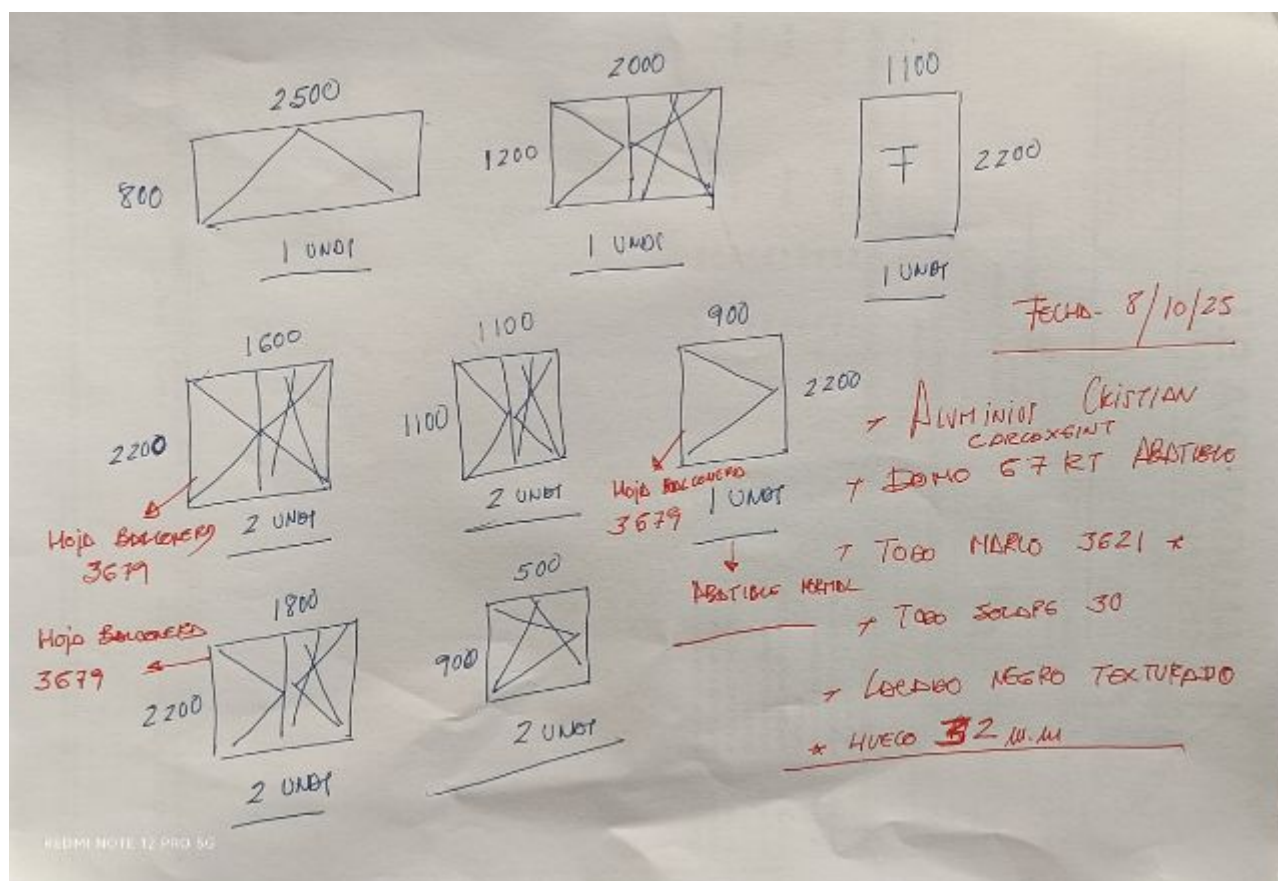 2500
800
1 UNDS
2000
1200
1 UNDS
1100
F
2200
1 UNDS
FECHA- 8/10/25
1600
2200
HOJA BALCONERA
3679
2 UNDS
1100
1100
2 UNDS
900
2200
HOJA BALCONERA
3679
1 UNDS
ABATIBLE NORMAL
1800
HOJA BALCONERA
3679
2200
2 UNDS
500
900
2 UNDS
ALUMINIOS CRISTIAN
CARCAXEINT
DOMO 67 RT ABATIBLE
TODO MARCO 3621 *
TODO SOLAPE 30
LACADO NEGRO TEXTURADO
* HUECO 32 m.m
REDMI NOTE 12 PRO 5G